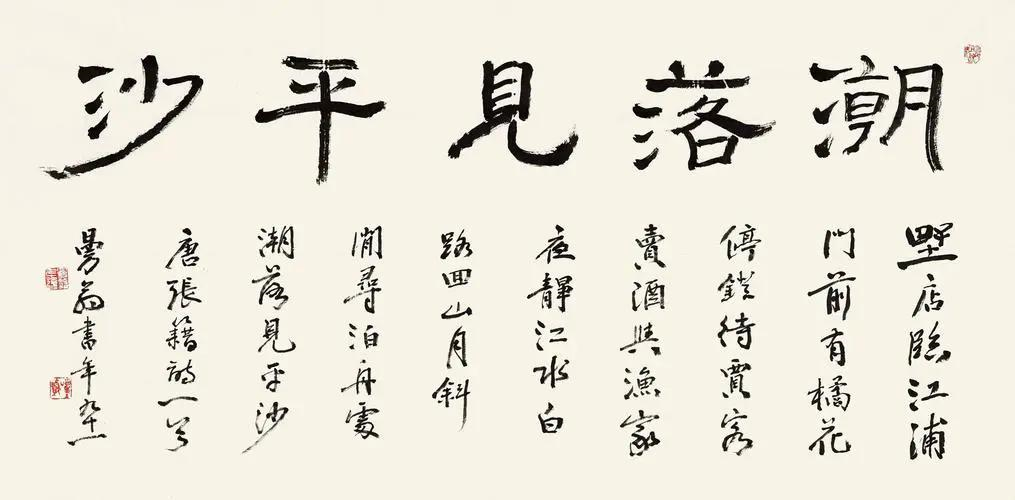 潮落見平沙
野店臨江浦
門前有橘花
停鐙待賈客
賣酒與漁家
夜靜江水白
路回山月斜
閒尋泊舟處
潮落見平沙
唐張籍詩一首
曼翁書年九十一